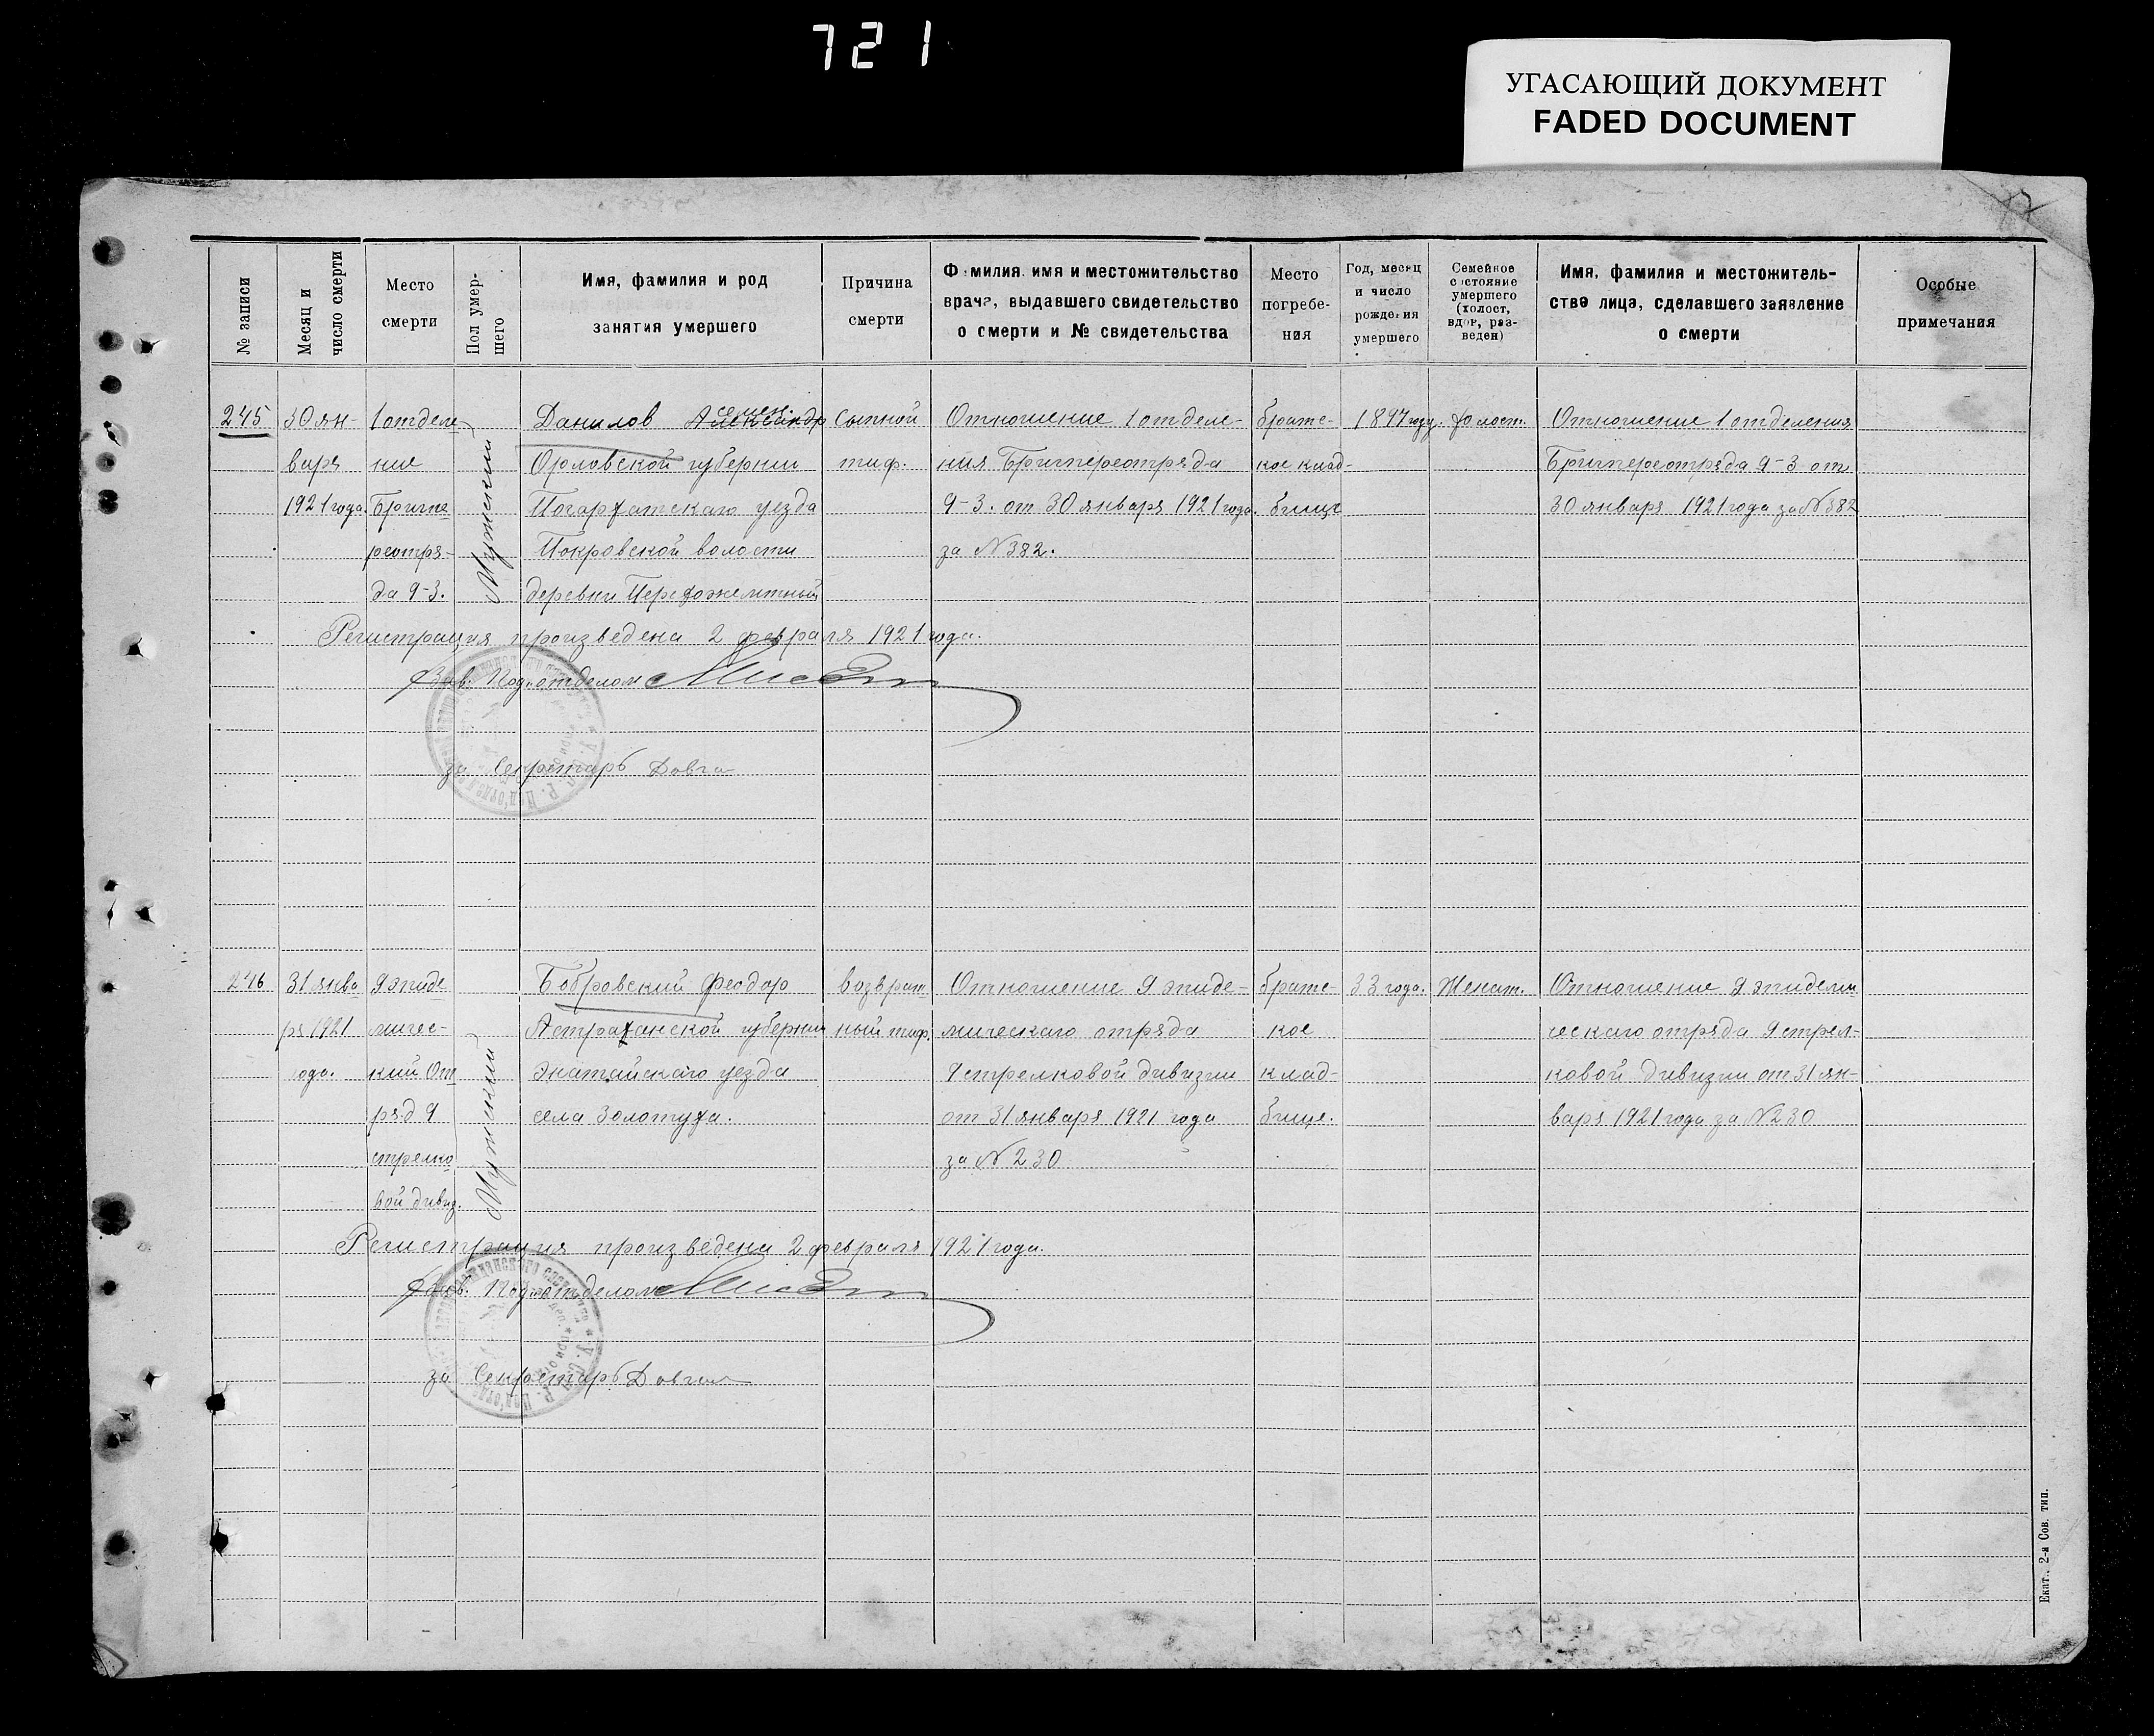 721
УГАСАЮЩИЙ ДОКУМЕНТ
FADED DOCUMENT
№ записи
Месяц и
число смерти
Место
смерти
Пол умер-
шего
Имя, фамилия и род
занятия умершего
Причина
смерти
Фамилия, имя и местожительство
врача, выдавшего свидетельство
о смерти и № свидетельства
Место
погребе-
ния
Год, месяц
и число
рождения
умершего
Семейное
состояние
умершего
(холост,
вдов, раз-
веден)
Имя, фамилия и местожитель-
ство лица, сделавшего заявление
о смерти
Особые
примечания
245
30 ян-
варя
1921 года.
1 отделе
ние
Бригпе
реотря-
да 9-3.
Мужский
Данилов Александр
семен.
Орловской губернии
уезда
Покровской волости
деревни
Сыпной
тиф.
Отношение 1 отделе-
ния Бригпереотряда
9-3. от 30 января 1921 года.
за № 382.
братс-
кое клад-
бище
1897 году.
холост.
Отношение 1 отделения
Бригпереотряда 9-3 от
30 января 1921 года за № 382
Регистрация произведена 2 февраля 1921 года.
Зав. Подотделом
за Секретарь
246
31 янва
ря 1921
года.
9 эпиде
мичес-
кий От
ряд 9
стрелко
вой дивиз.
Мужский
Бобровский Феодор
Астраханской губернии
Энатайскаго уезда
села Золотуха.
возврат
ный тиф.
Отношение 9 эпиде-
мическаго отряда
9 стрелковой дивизии
от 31 января 1921 года
за № 230
братс-
кое
клад-
бище.
33 года.
Женат.
Отношение 9 эпидеми
ческаго отряда 9 стрел-
ковой дивизии от 31 ян-
варя 1921 года за № 230
Регистрация произведена 2 февраля 1921 года.
Зав. Подотделом
за Секретарь
Екат., 2-я Сов. тип.